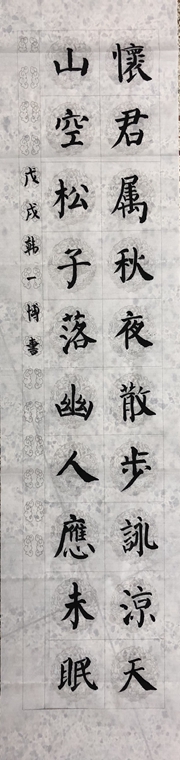 懷君属秋夜散步詠涼天
山空松子落幽人應未眠
戊戌韩一博書